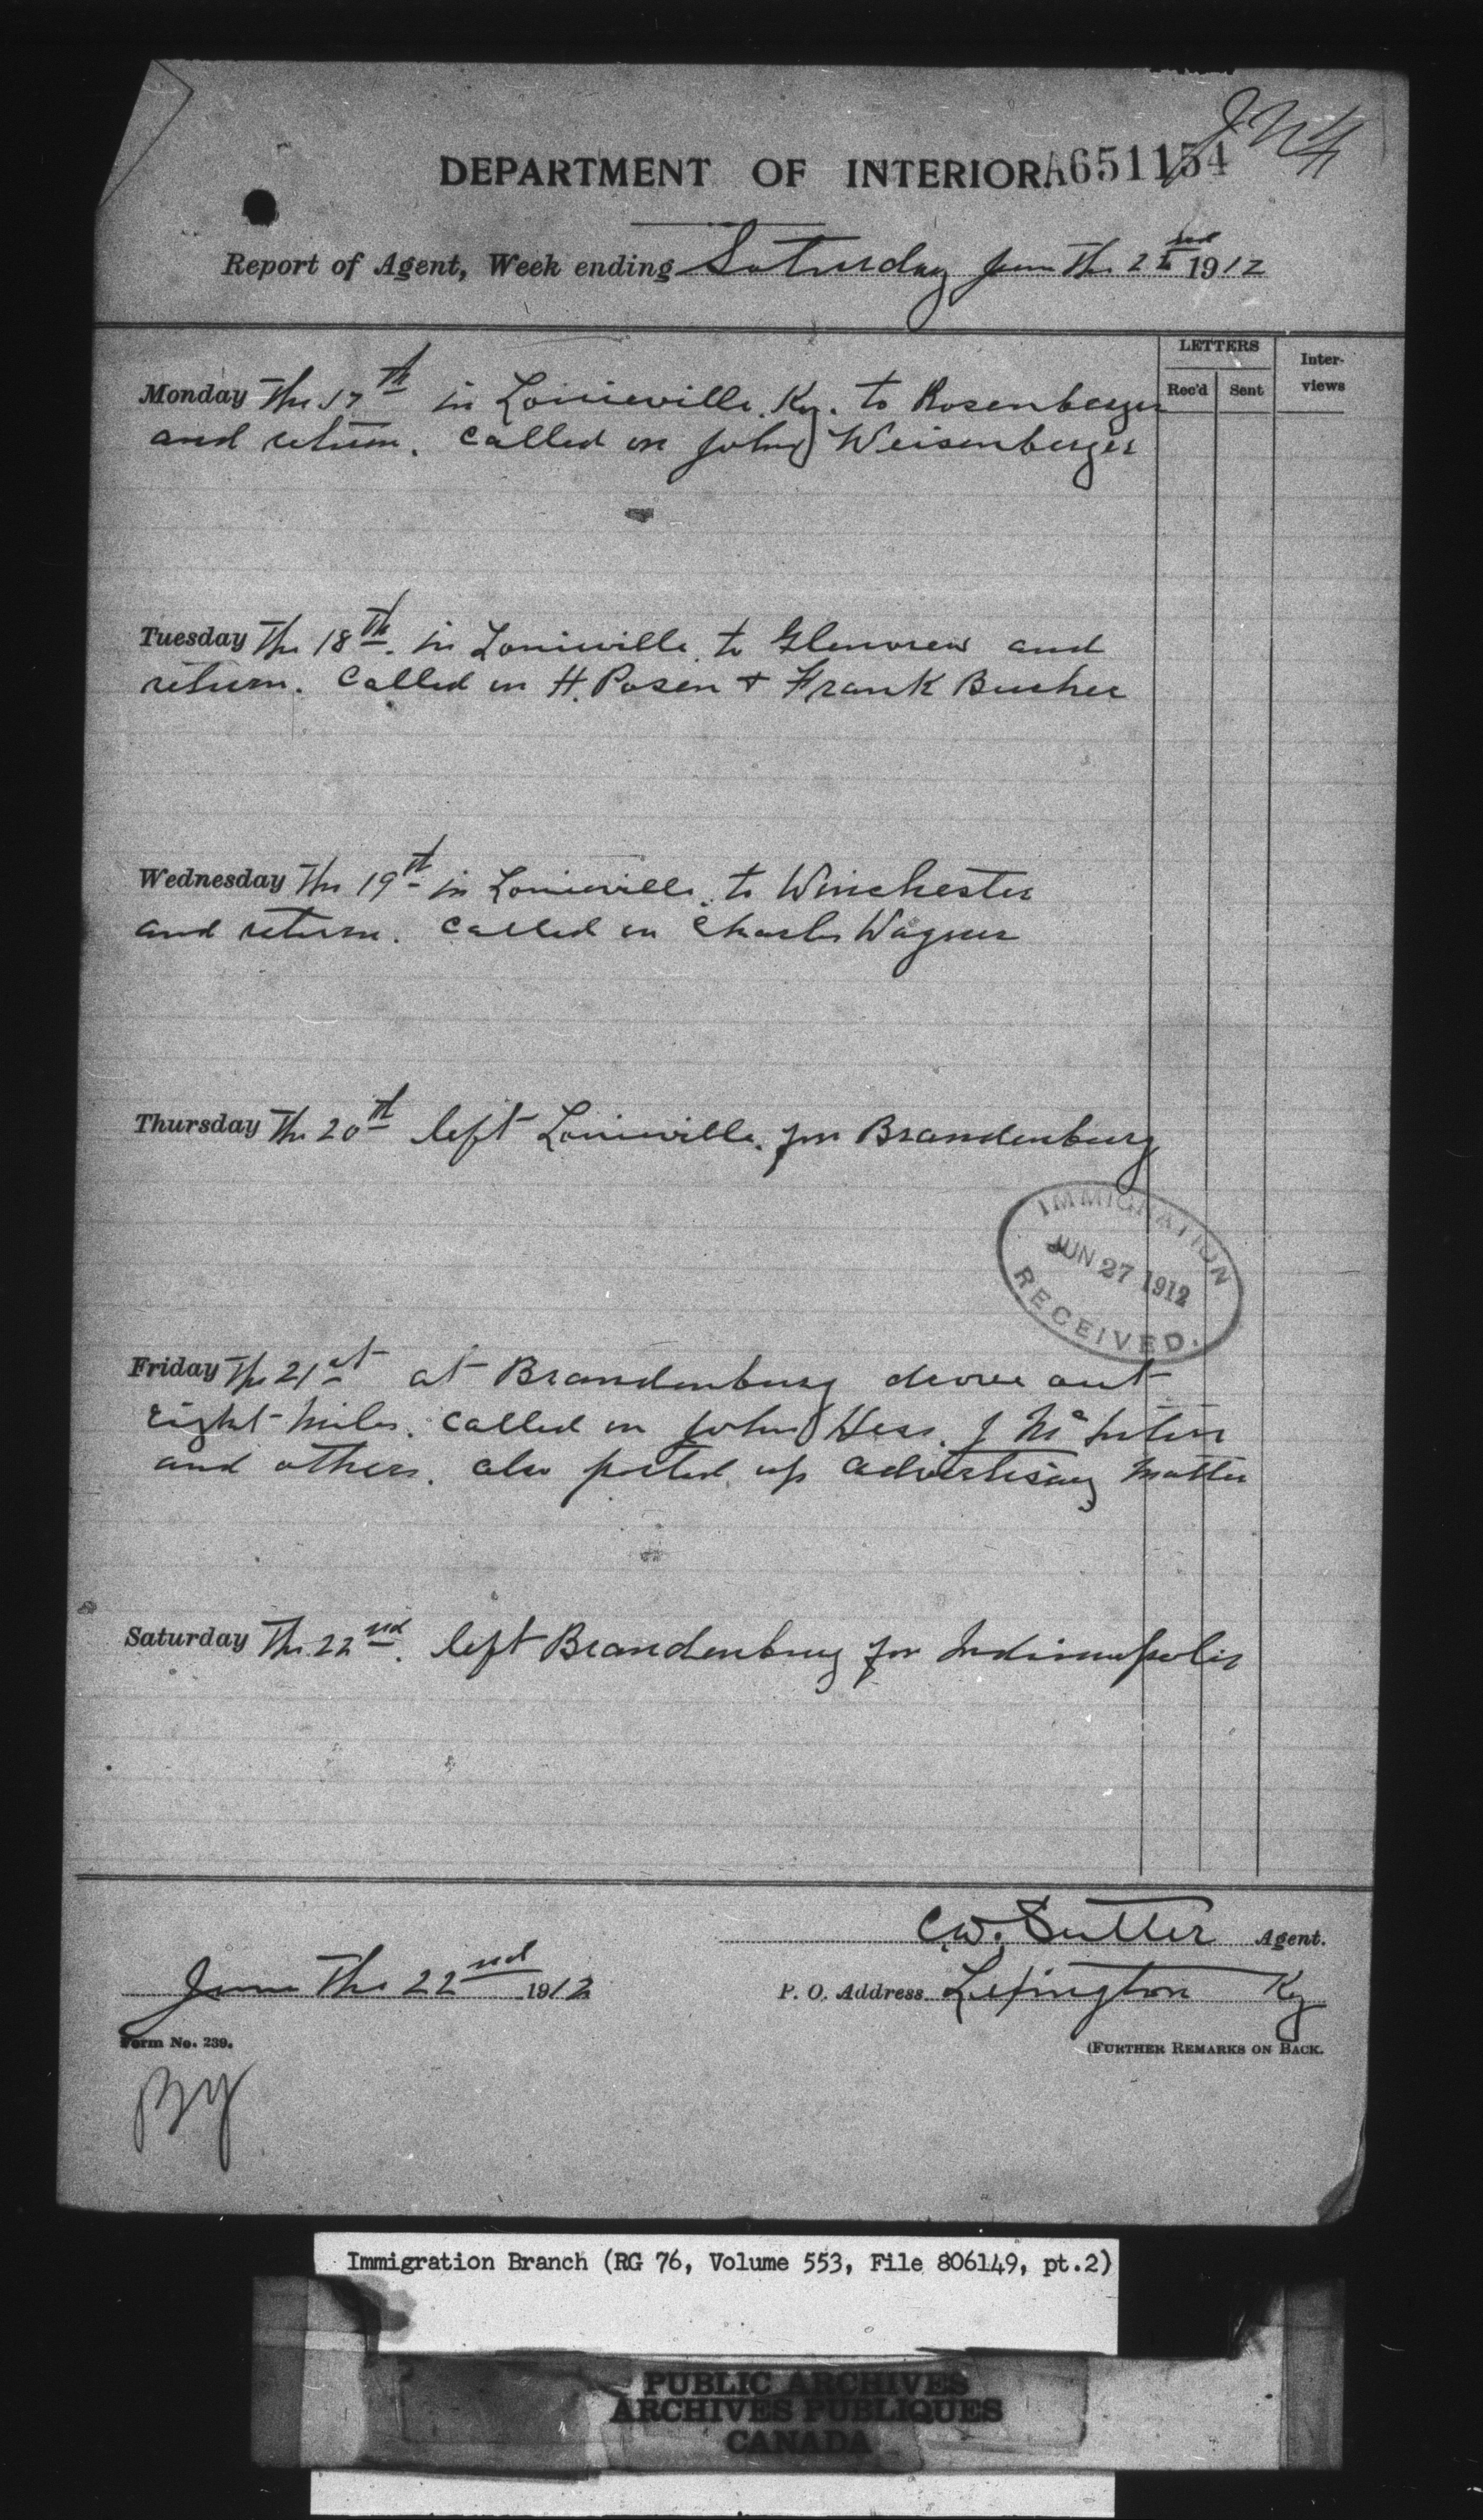 DEPARTMENT OF INTERIOR A651154
Report of Agent, Week ending Saturday June The 22nd 1912
LETTERS
Rec'd Sent Inter-views
Monday The 17th in Louisville Ky. to Rosenberger
and return. Called on John Weisenberger
Tuesday The 18th. in Louisville to Glenview and
return. Called on H. Posen & Frank Bucher
Wednesday The 19th in Louisville. to Winchester
and return. Called on Charles Wagner
Thursday The 20th left Louisville for Brandenburg
IMMIGRATION
JUN 27 1912
RECEIVED.
Friday The 21st at Brandenburg drove out
eight miles. Called on John Hess. J Mc
and others. also posted up advertising matter
Saturday The 22nd. left Brandenburg for Indianapolis
C.W. Sutter Agent.
June The 22nd 1912
P. O. Address Lexington Ky
Form No. 239.
(FURTHER REMARKS ON BACK.
Immigration Branch (RG 76, Volume 553, File 806149, pt.2)
PUBLIC ARCHIVES
ARCHIVES PUBLIQUES
CANADA